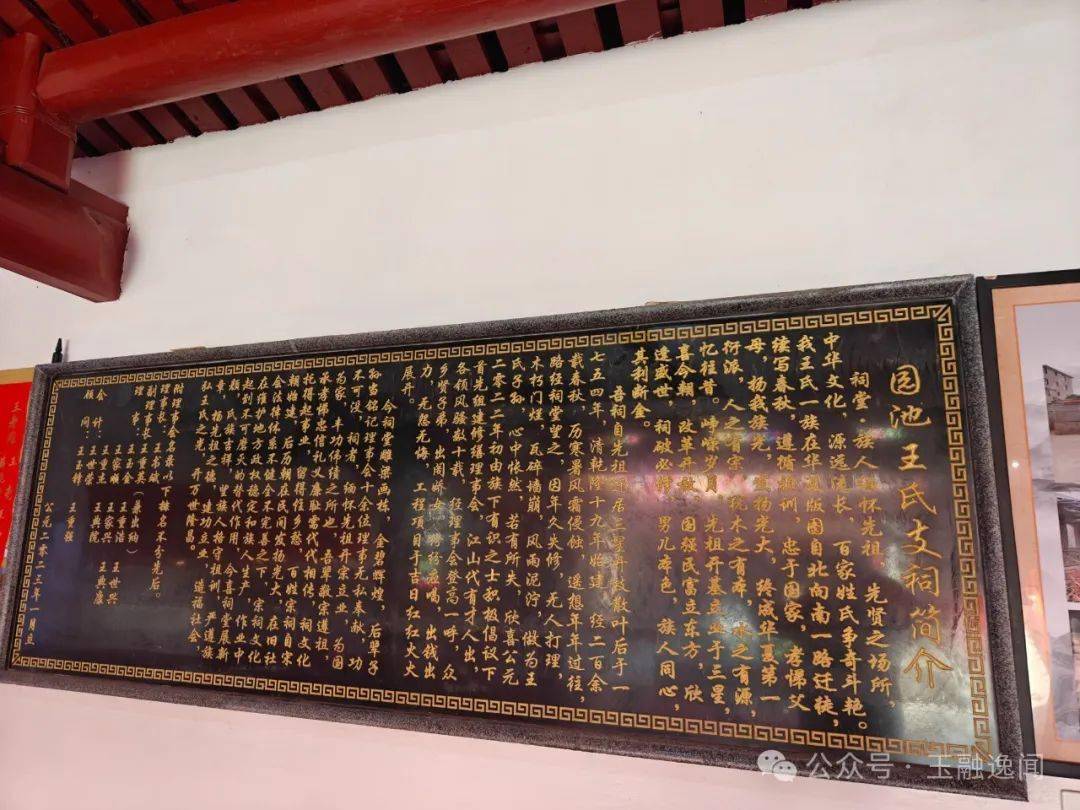 园池王氏支祠简介
祠堂·族人缅怀先祖、先贤之场所，
中华文化，源远流长，百家姓氏争奇斗艳。
我王氏一族在华夏版图自北向南一路迁徙，
续写春秋，遵循祖训，忠于国家，孝悌父
母，杨我族光，萱物光大，终成华夏第一
衍派，人之有宗，犹木之有本，水之有源，
忆往昔，峥嵘岁月，先祖开基立业于三星，
喜今朝，改革开放，国强民富立东方，欣
逢盛世，祠破必修，男儿本色，族人同心，
其利断金。
吾祠自先祖卜居三星开枝散叶后于一
七五四年，清乾隆十九年始建，经二百余
载春秋，历寒暑风霜侵蚀，遥想年年过往，
路经祠堂望之，因年久失修，无人打理，
木朽门烂，瓦碎墙崩，风雨泥泞，做为王
氏子孙，心中怅然，若有所失，欣喜公元
二零二二年初由族下有识之士积极倡议下
首先组建修缮理事会，江山代有才人出，
各领风骚数十载，经理事会登高一呼，众
乡贤子弟，出阁娇女，纷纷应喝，出钱出
力，无怨无悔，工程项目于吉日红红火火
展开。
今祠堂雕梁画栋，金碧辉煌，后辈子
孙当铭记理事会十余位理事无私奉献，功
不可没，祠者，缅怀先祖开宗立业，为国
为家，丰功伟绩之所也，吾辈敬宗遵祖，
承孝悌忠信礼义廉耻常代代相传，祠文化
托得起事业，留得住乡愁，百姓宗祠自宋
朝始建，后历朝在民间发扬光大，在旧社
会法律体系不健全不完善之下，宗祠文化
在维护地方政权稳定和族人生产，作业中
起到不可磨灭的替代作用，今喜祠堂展新
颜，氏族吉祥，里人格守祖训，严遵族
章，杨先祖之德，建功立业，造福社会，
弘王氏之光，开万世隆昌。
附理事会名录以下排名不分先后。
理事长：王书斌
副理事长：王重洁
理事：王玉金
王家顺 王家兴 王世兴
会计：王世荣 王典院 王典康
顾问：王玉锋 王重强
公元二零二三年一月立
公众号·玉融逸闻